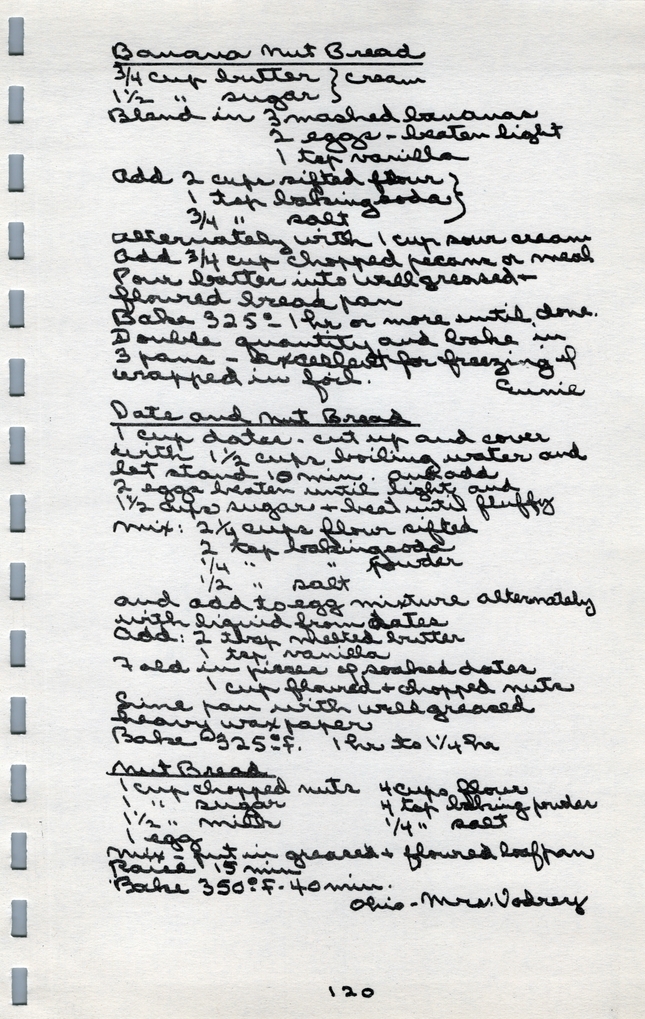 Banana Nut Bread
3/4 cup butter } cream
1 1/2 " sugar }
Blend in 3 mashed bananas
2 eggs - beaten light
1 tsp vanilla
Add 2 cups sifted flour }
1 tsp baking soda }
3/4 " salt
alternately with 1 cup sour cream
Add 3/4 cup chopped pecans or meal
Pour batter into well greased +
floured bread pan
Bake 325° - 1 hr or more until done.
Double quantity and bake in
3 pans - Excellent for freezing if
wrapped in foil.
Eunie
Date and Nut Bread
1 cup dates - cut up and cover
with 1 1/2 cups boiling water and
let stand 10 min. and add
2 eggs beaten until light, and
1 1/2 cups sugar + beat until fluffy
Mix: 2 1/4 cups flour sifted
2 tsp baking soda
1/4 " " powder
1/2 " salt
and add to egg mixture alternately
with liquid from dates
Add: 2 tbsp melted butter
1 tsp vanilla
Fold in pieces of soaked dates
1 cup floured + chopped nuts
Line pan with well greased
heavy wax paper
Bake 325° F. 1 hr to 1 1/4 hr
Nut Bread
1 cup chopped nuts 4 cups flour
1 " sugar 4 tsp baking powder
1 1/2 " milk 1/4 " salt
1 egg
Mix - put in greased + floured loaf pan
Raise 15 min
Bake 350° F - 40 min.
Ohio - Mrs. Vodrey
120